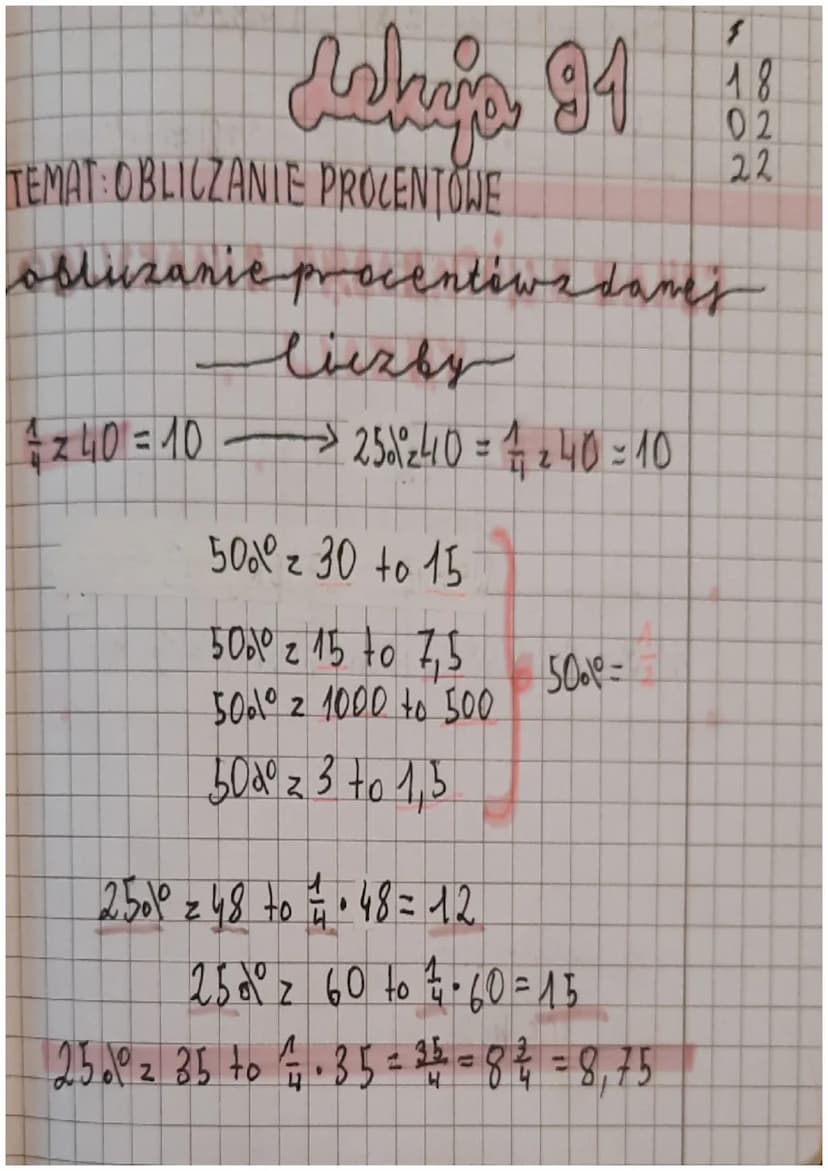 Lekcja 91
18
02
22
TEMAT: OBLICZANIE PROCENTOWE
obliczanie procentów z danej
liczby
1/4 z 40 = 10 → 25% z 40 = 1/4 z 40 = 10
50% z 30 to 15
50% z 15 to 7,5
50% z 1000 to 500
50% z 3 to 1,5
50% = 1/2
25% z 48 to 1/4 · 48 = 12
25% z 60 to 1/4 · 60 = 15
25% z 35 to 1/4 · 35 = 35/4 = 8 3/4 = 8,75